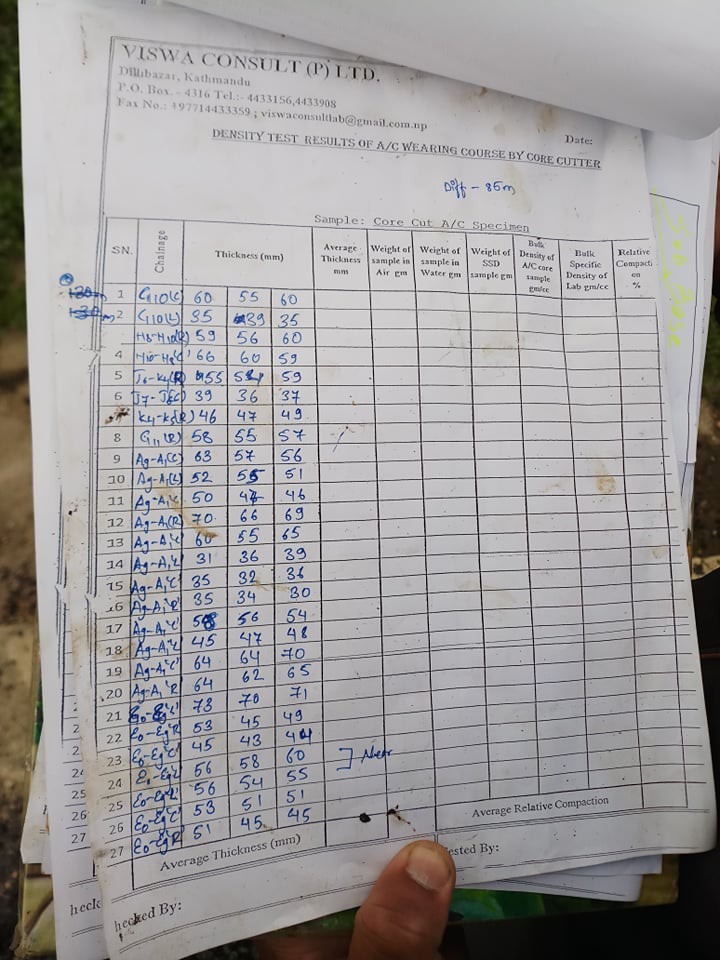 VISWA CONSULT (P) LTD.
Dillibazar, Kathmandu
P.O. Box. - 4316 Tel.:- 4433156,4433908
Fax No.: +97714433359 ; viswaconsultlab@gmail.com.np
Date:
DENSITY TEST RESULTS OF A/C WEARING COURSE BY CORE CUTTER
Diff - 85m
Sample: Core Cut A/C Specimen
SN. Chainage Thickness (mm) Average Thickness mm Weight of sample in Air gm Weight of sample in Water gm Weight of SSD sample gm Bulk Density of A/C core sample gm/cc Bulk Specific Density of Lab gm/cc Relative Compacti on %
1 G10(C) 60 55 60
2 G10(L) 35 39 35
H8-H10(R) 59 56 60
4 66 60 59
5 55 59
6 39 36 37
K4-K5(R) 46 47 49
8 G11(R) 58 55 57
9 Ag-A1(C) 63 57 56
10 Ag-A1(L) 52 55 51
11 Ag-A1'L' 50 46
12 Ag-A1(R) 70 66 69
13 Ag-A1'L' 60 55 65
14 Ag-A1'L' 31 36 39
15 Ag-A1'C' 35 32 36
16 Ag-A1'R' 35 34 30
17 Ag-A1'C' 56 54
18 Ag-A1'L 45 47 48
19 Ag-A1'C' 64 64 70
20 Ag-A1'R 64 62 65
21 73 70 71
22 E0-Eg'R' 53 45 49
23 E0-Eg'C' 45 43 44
24 E0-Eg'L' 56 58 60
25 E0-Eg'L' 56 54 55
26 E0-Eg'C' 53 51 51
27 E0-Eg'R 51 45 45
Average Thickness (mm) Average Relative Compaction
hecked By: ested By:
24
25
26
27
heck
Base